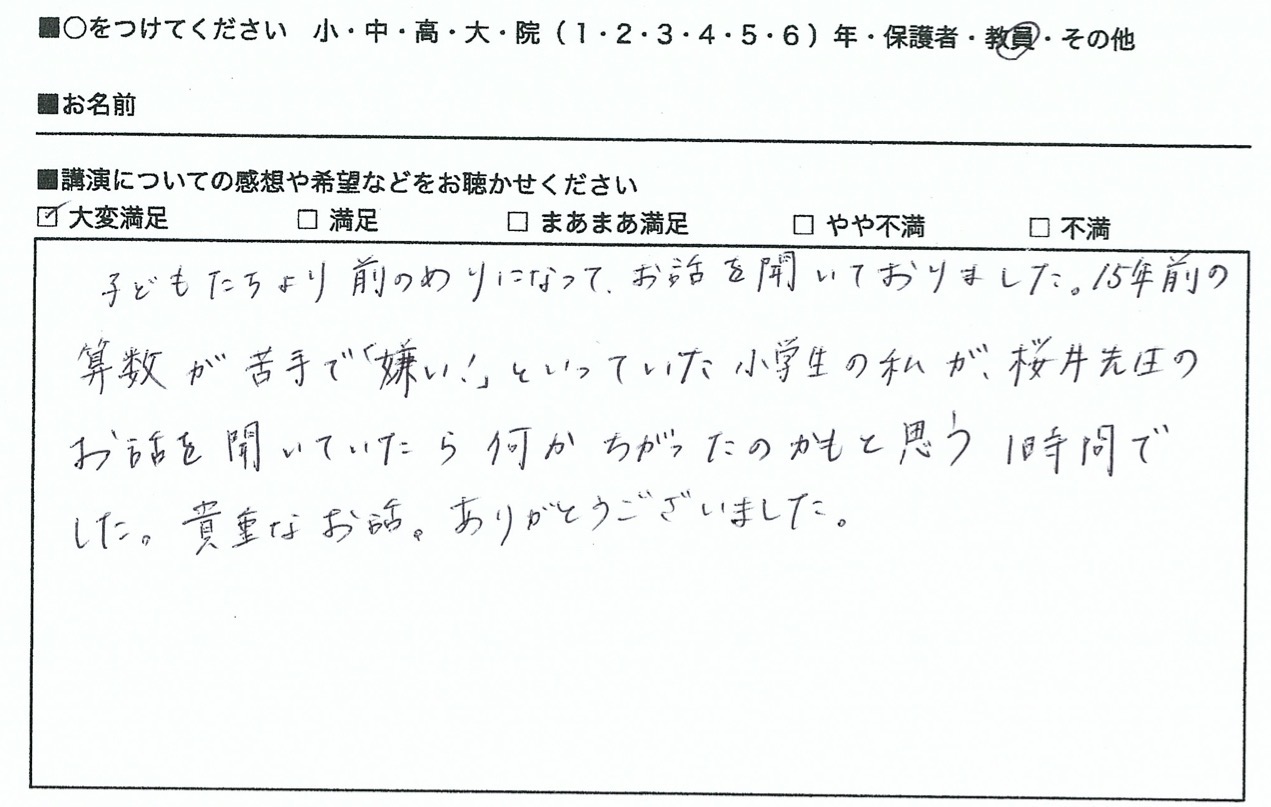 ■○をつけてください 小・中・高・大・院（1・2・3・4・5・6）年・保護者・教員・その他
■お名前
■講演についての感想や希望などをお聴かせください
☑ 大変満足 □ 満足 □ まあまあ満足 □ やや不満 □ 不満
子どもたちより前のめりになって、お話を聞いておりました。15年前の
算数が苦手で「嫌い！」といっていた小学生の私が、桜井先生の
お話を聞いていたら何かちがったのかもと思う1時間で
した。貴重なお話。ありがとうございました。